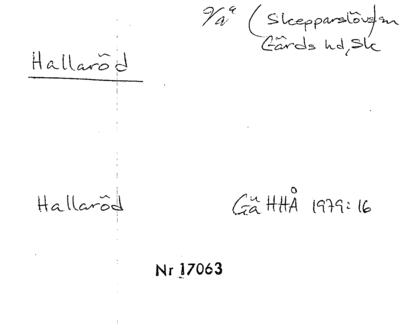 (Skepparslövs)sn
Gärds hd, Sk
Hallaröd
Hallaröd Gä HHÅ 1979:16
Nr 17063